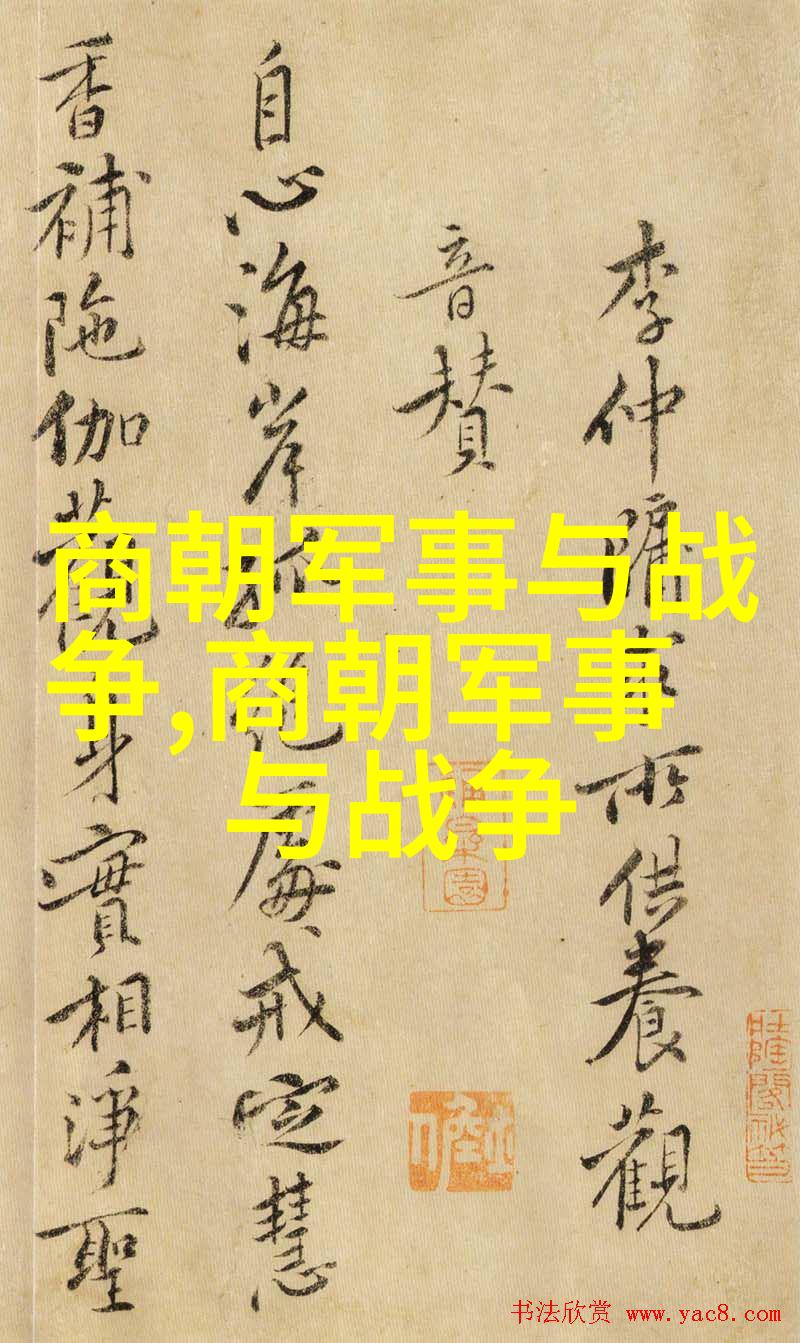 李仲牖家所供養觀
音贊
自心海岸孤絶處戒定慧
香補陁伽觀身實相淨聖
商朝军事与战
争,商朝军事
与战争
书法欣赏 www.yac8.com